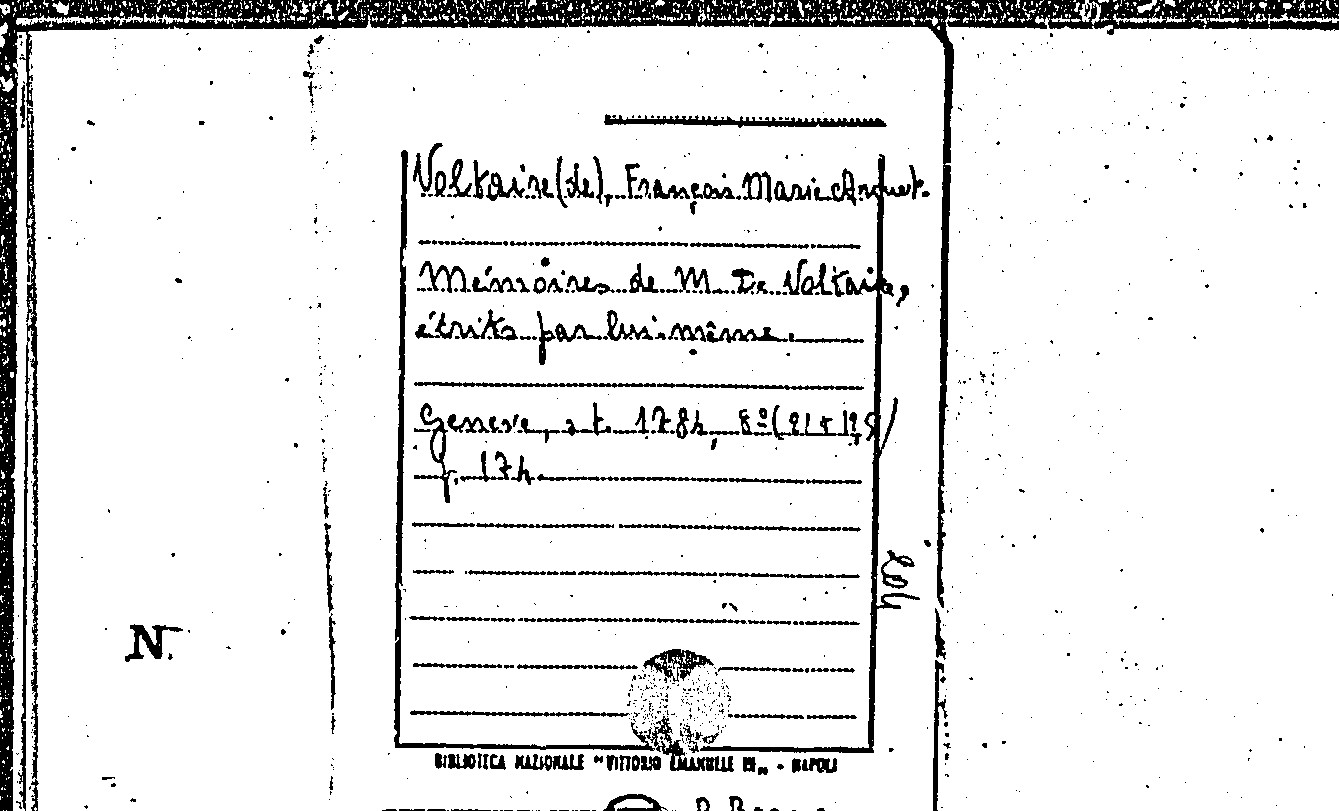 Voltaire (de), François Marie Arquet.
Mémoires de M. De Voltaire,
étrits par lui-même.
Geneve, s. t. 1784, 8º (21 x 12,5)
p. 174.
N.
BIBLIOTECA NAZIONALE "VITTORIO EMANUELE III„ - NAPOLI